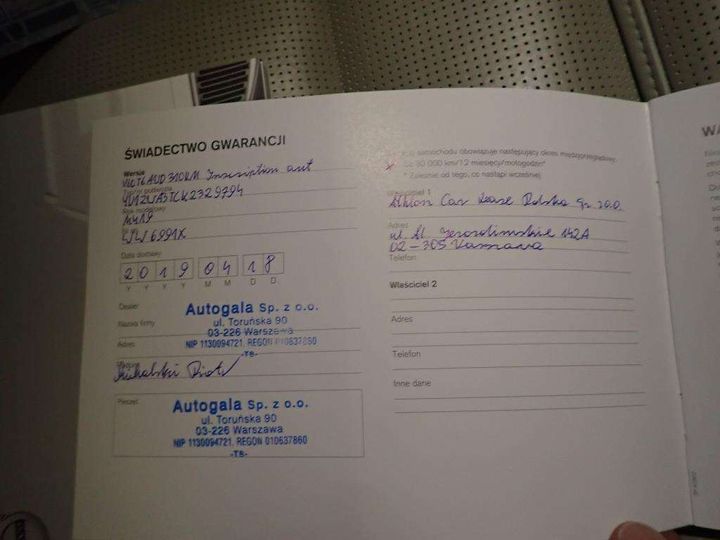 ŚWIADECTWO GWARANCJI
Wersja
T6 AWD 310KM Inscription aut
Numer podwozia
Rok modelowy
MY19
Data dostawy
2019 04 18
Y Y Y Y M M D D
Dealer
Nazwa firmy
Adres
Autogala Sp. z o.o.
ul. Toruńska 90
03-226 Warszawa
NIP 1130094721, REGON 010637860
-T8-
Piotr
Pieczęć
Autogala Sp. z o.o.
ul. Toruńska 90
03-226 Warszawa
NIP 1130094721, REGON 010637860
-T8-
samochodu obowiązuje następujący okres międzyprzeglądowy:
30 000 km/12 miesięcy/motogodzin*
* Zależnie od tego, co nastąpi wcześniej
Właściciel 1
Athlon Car Lease Polska Sp. z o.o.
Adres
ul. Al. Jerozolimskie 142A
02-305 Warszawa
Telefon
Właściciel 2
Adres
Telefon
Inne dane